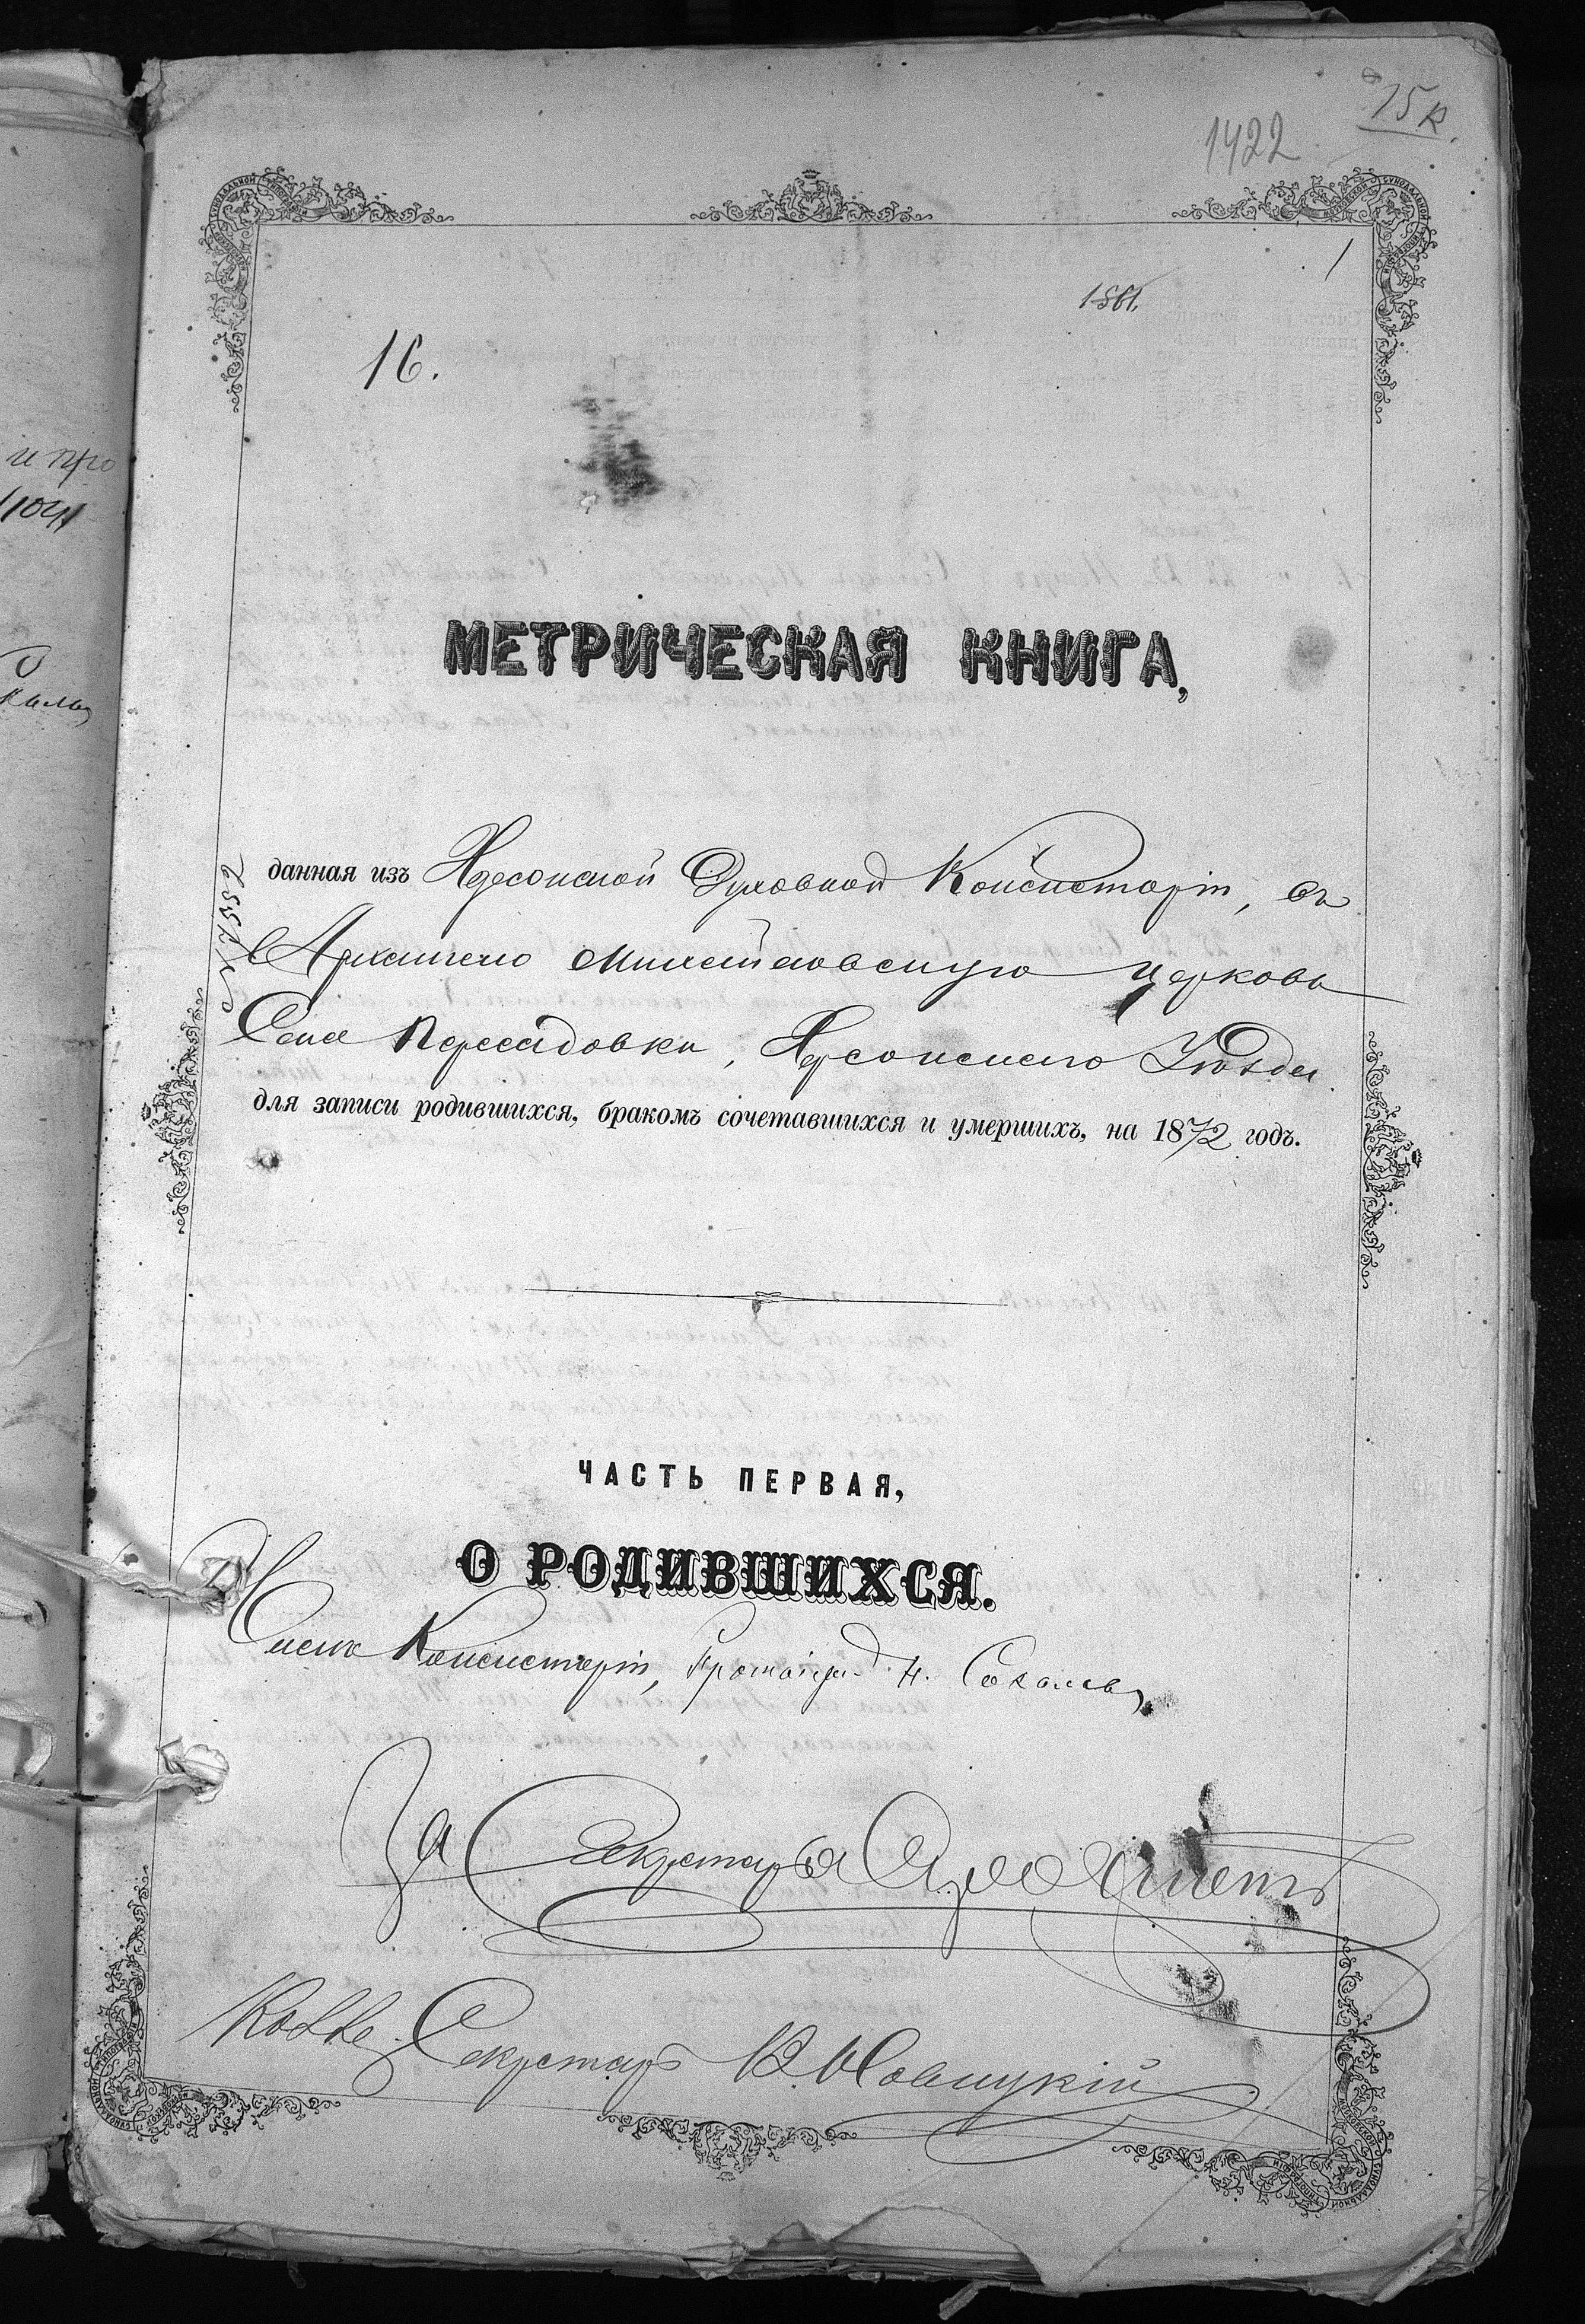 15 к.
1422
1
1861.
16.
МЕТРИЧЕСКАЯ КНИГА,
данная изъ Херсонской Духовной Консисторіи, въ
Архангело Михайловскую церковь
Села Пересадовки, Херсонскаго Уѣзда
для записи родившихся, бракомъ сочетавшихся и умершихъ, на 1872 годъ.
ЧАСТЬ ПЕРВАЯ,
О РОДИВШИХСЯ.
Членъ Консисторіи, Протоіерей Н. Соколовъ
За Секретаря
Колле. Секретарь В. Новицкій
и про